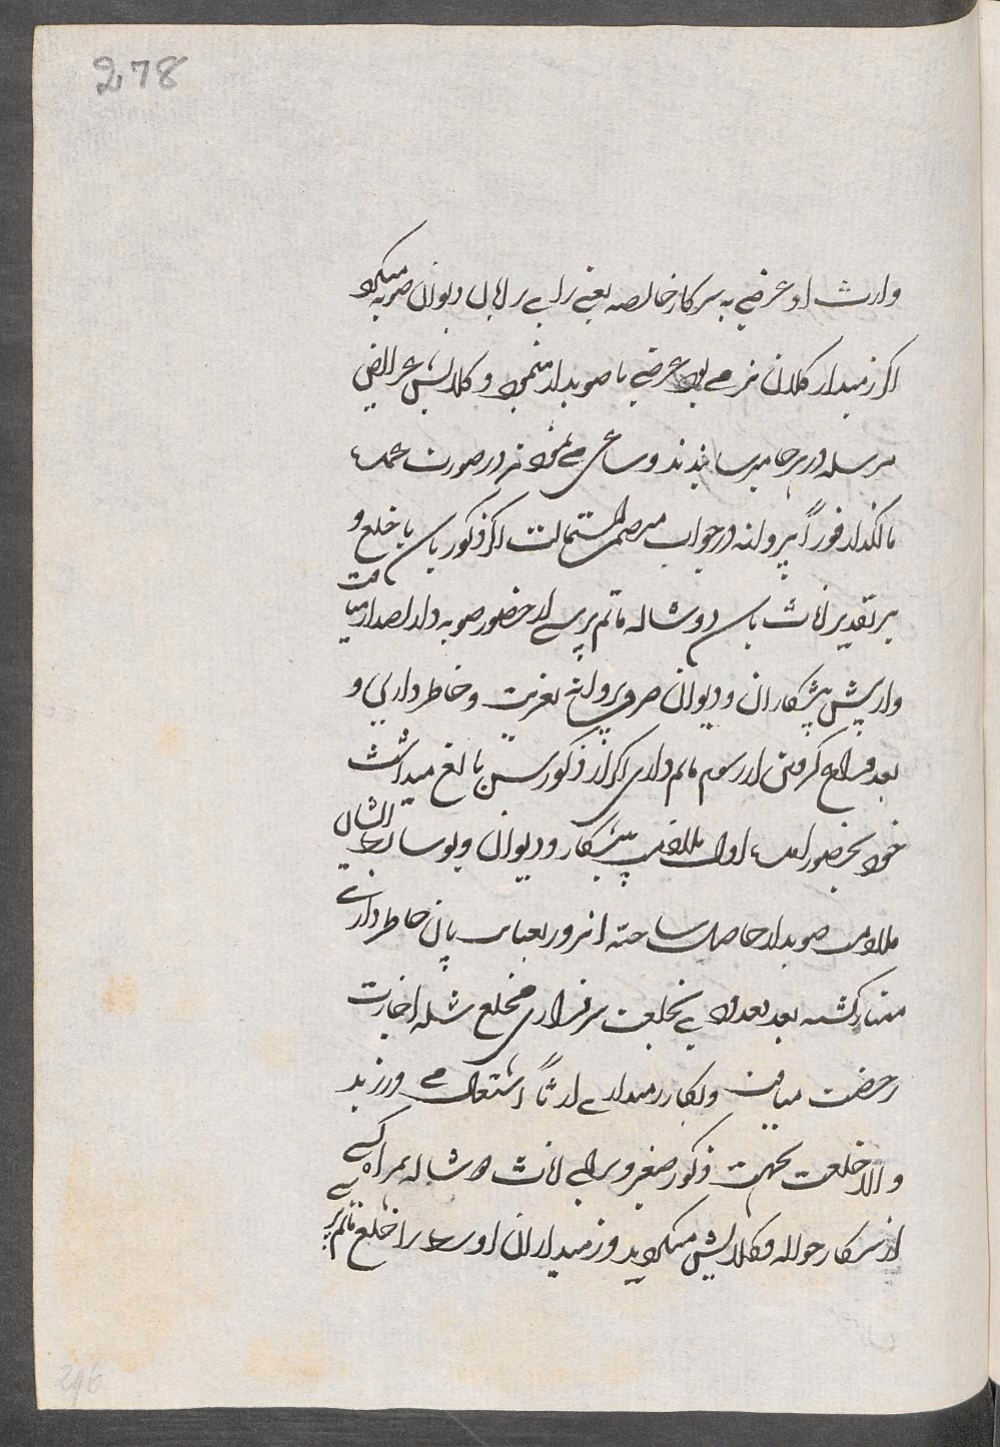 278
وارث او عرضی به سرکار خالصه یعنی رای رایان دیوان صوبه میکرد
اگر زمیدار کلان تر می بود عرضی با صوبدار مینمود و کلایش عرایض
مرسله در هر جا میرسانیدند و ساعی می نمود در صورت
مالگذار فوراً پروانه در جواب استمالت اگر ذکور با خلع و
بر تقدیر اناث دوشاله ماتم پرسی از حضور صوبه دار اصدار مییافت
و از پیش پیشکاران و دیوان صرف پروانه تعزیت و خاطرداری و
بعد فراغ کردن از رسوم ماتم داری اگر از ذکور سن بالغ میداشت
خود بحضور اول ملاقات پیشکار و دیوان و بوساطت ایشان
ملازمت صوبدار حاصل ساخته انروز پان خاطرداری
گشته بعد تعداد بخلعت سرفرازی مخلع شده اجازت
رخصت مییافت و بکار زمیداری ارثاً اشتغال می ورزید
و الا خلعت بجهت ذکور صغیر و برای اناث دوشاله همراه کسی
از سرکار حواله وکلایش میگردید و زمیداران اوسط را خلع ماتم پرسی
296